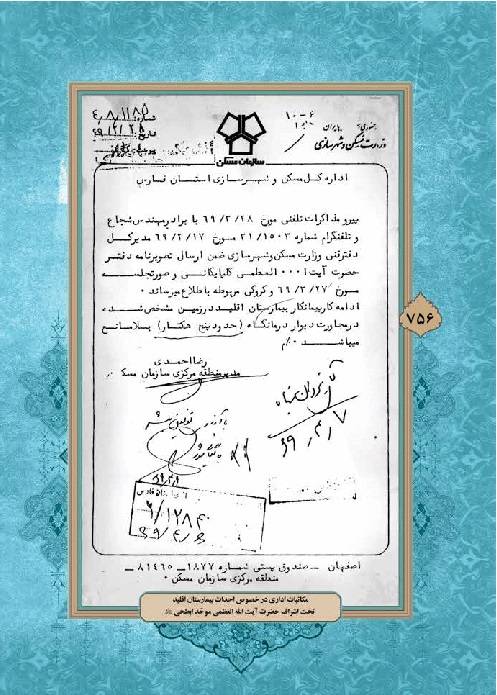 جمهوری اسلامی ایران
وزارت مسکن و شهرسازی
سازمان مسکن
اداره کل مسکن و شهرسازی استان فارس
پیرو مذاکرات تلفنی مورخ ۶۹/۳/۲۸ با برادر مهندس شجاع
و تلفنگرام شماره ۲۱/۱۵۰۳ مورخ ۶۹/۲/۱۷ مدیرکل
دفترفنی وزارت مسکن وشهرسازی ضمن ارسال تصویرنامه دفتر
حضرت آیت ا۰۰۰ العظمی گلپایگانی و صورتجلسه
مورخ ۶۹/۳/۲۷ و کروکی مربوطه باطلاع میرساند ۰
ادامه کارپیمانکار بیمارستان اقلید درزمین مشخص شده
درمجاورت دیوار درمانگاه (حدود پنج هکتار) بلامانع
میباشد ۰
رضا احمدی
مدیر منطقه مرکزی سازمان مسکن ۰
۶۹/۴/۷
۶/۱۲۸۴۰
۶۹/۴/۶
اصفهان – صندوق پستی شماره ۱۸۷۷ – ۸۱۴۶۵
منطقه مرکزی سازمان مسکن ۰
۷۵۶
مکاتبات اداری در خصوص احداث بیمارستان اقلید
تحت اشراف حضرت آیت الله العظمی موحد ابطحی